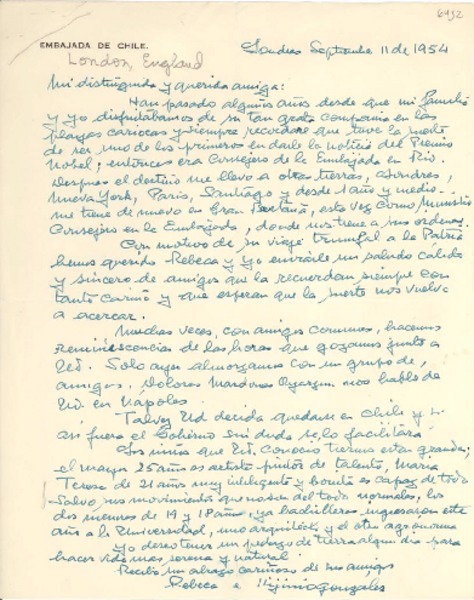 6452
EMBAJADA DE CHILE.
London, England
Londres Septiembre 11 de 1954
Mi distinguida y querida amiga:
Han pasado algunos años desde que mi familia
y yo disfrutabamos de su tan grata compañia en las
playas cariocas y siempre recordare que tuve la suerte
de ser uno de los primeros en darle la noticia del Premio
Nobel; entonces era Consejero de la Embajada en Rio.
Despues el destino me llevo a otras tierras, Londres,
Nueva York, Paris, Santiago y desde 1 año y medio
me tiene de nuevo en Gran Bretaña, esta vez como Ministro
Consejero en la Embajada, donde nos tiene a sus ordenes.
Con motivo de su viaje triunfal a la Patria
hemos querido Rebeca y yo enviarle un saludo cálido
y sincero de amigos que la recuerdan siempre con
tanto cariño y que esperan que la suerte nos vuelva
a acercar.
Muchas veces, con amigos comunes, hacemos
reminiscencias de las horas que gozamos junto a
Ud. Solo ayer almorzamos con un grupo de
amigos. Dolores Oyarzun nos hablo de
Ud. en Napoles
Talvez Ud decida quedarse en Chile y si
asi fuera el Gobierno sin duda se lo facilitará
Los niños que Ud. conocio tiernos estan grandes;
el mayor 25 años es artista pintor de talento, Maria
Teresa de 21 años muy inteligente y bonita es capaz de todo
salvo, sus movimientos que no son del todo normales, los
dos menores de 19 y 18 años, ya bachilleres ingresaron este
año a la Universidad, uno arquitecto y el otro agronomo
Yo deseo tener un pedazo de tierra algun dia para
hacer vida mas serena y natural
Reciba un abrazo cariñoso de sus amigos
Rebeca e Higinio Gonzalez